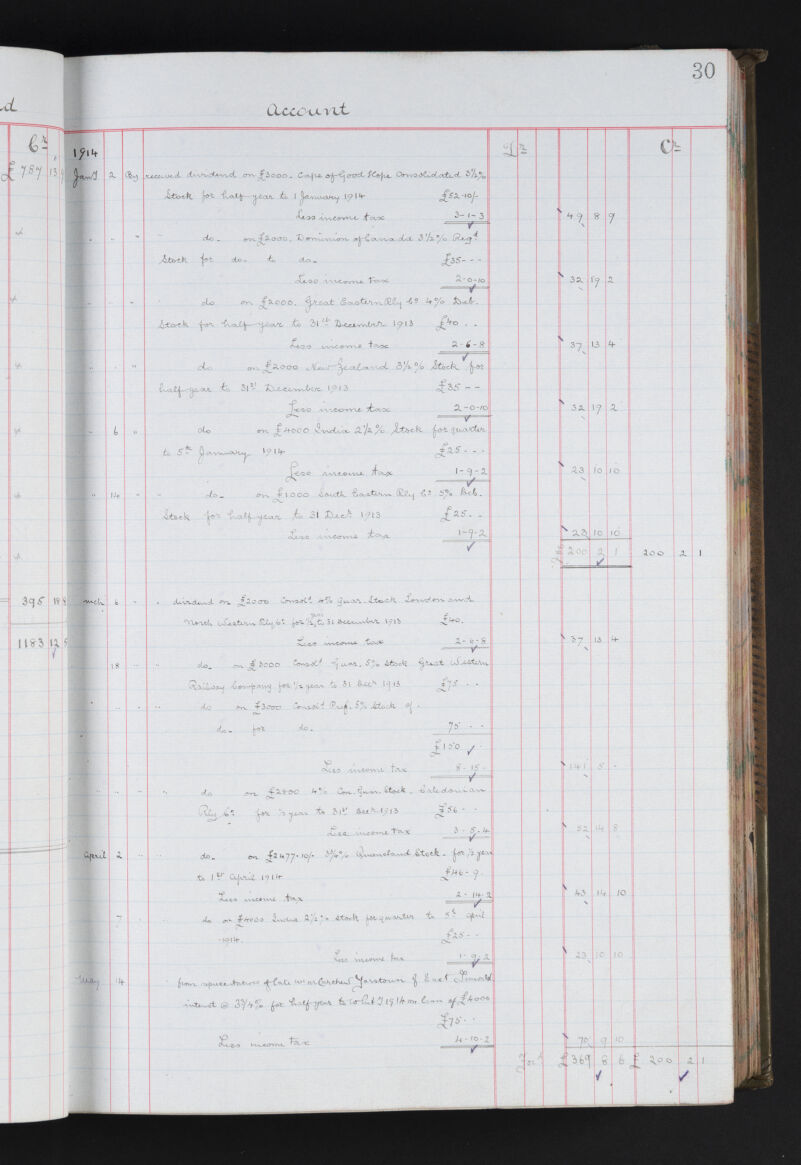 30
d
Account
Cr
£ 787 13
1914
Dr
Cr
Jany 2 By received dividend on £3000. Cape of Good Hope Consolidated 3½%
Stock for half year to 1 January 1914 £52.10/-
Less income tax 3-1-3 49 8 9
" " " do. on £2000. Dominion of Canada 3½% Regd
Stock for do. to do. £35---
Less income tax 2-0-10 32 19 2
" " do on £2000. Great Eastern Rly Co 4% Deb.
Stock for half year to 31st December 1913 £40 . .
Less income tax 2-6-8 37 13 4
" " " do on £2000 New Zealand 3½% Stock for
half year to 31st December 1913 £35 --
Less income tax 2-0-10 32 19 2
" 6 " do on £4000 India 2½% Stock for quarter
to 5th January 1914 £25 ---
Less income tax 1-9-2 23 10 10
" 14 " " do. on £1000 South Eastern Rly Co 5% Deb.
Stock for half year to 31 Decr 1913 £25. .
Less income tax 1-9-2 23 10 10
200 2 1 200 2 1
395 18
Mch 6 " . dividend on £2000 Consold 4% Guar. Stock London and
North Western Rly Co for ½ year to 31 December 1913 £40.
1183 12
Less income tax 2-6-8 37 13 4
18 " " do. on £3000 Consold Guar. 5% Stock Great Western
Railway Company for ½ year to 31 Decr 1913 £75 . .
" " do on £3000 Consold Pref. 5% Stock of
do. for do. 75 . .
£150 .
Less income tax 8-15- 141 5 -
" " " do on £2800 4% Con. Guar. Stock. Caledonian
Rly Co for ½ year to 31st Decr 1913 £56 - -
Less income tax 3-5-4 52 14 8
April 2 " " do. on £2477.10/- 3¾% Queensland Stock. for ½ year
to 1st April 1914 £46-9.
Less income tax 2-14-2 43 14 10
7 " do on £4000 India 2½% Stock for quarter to 5th April
1914. £25--
Less income tax 1-9-2 23 10 10
May 14 " from of late
interest @ 3¾% for half year to 1914 on loan of £4000
£75 . .
Less income tax 4-10-2 70 9 10
£369 8 6 £ 200 2 1